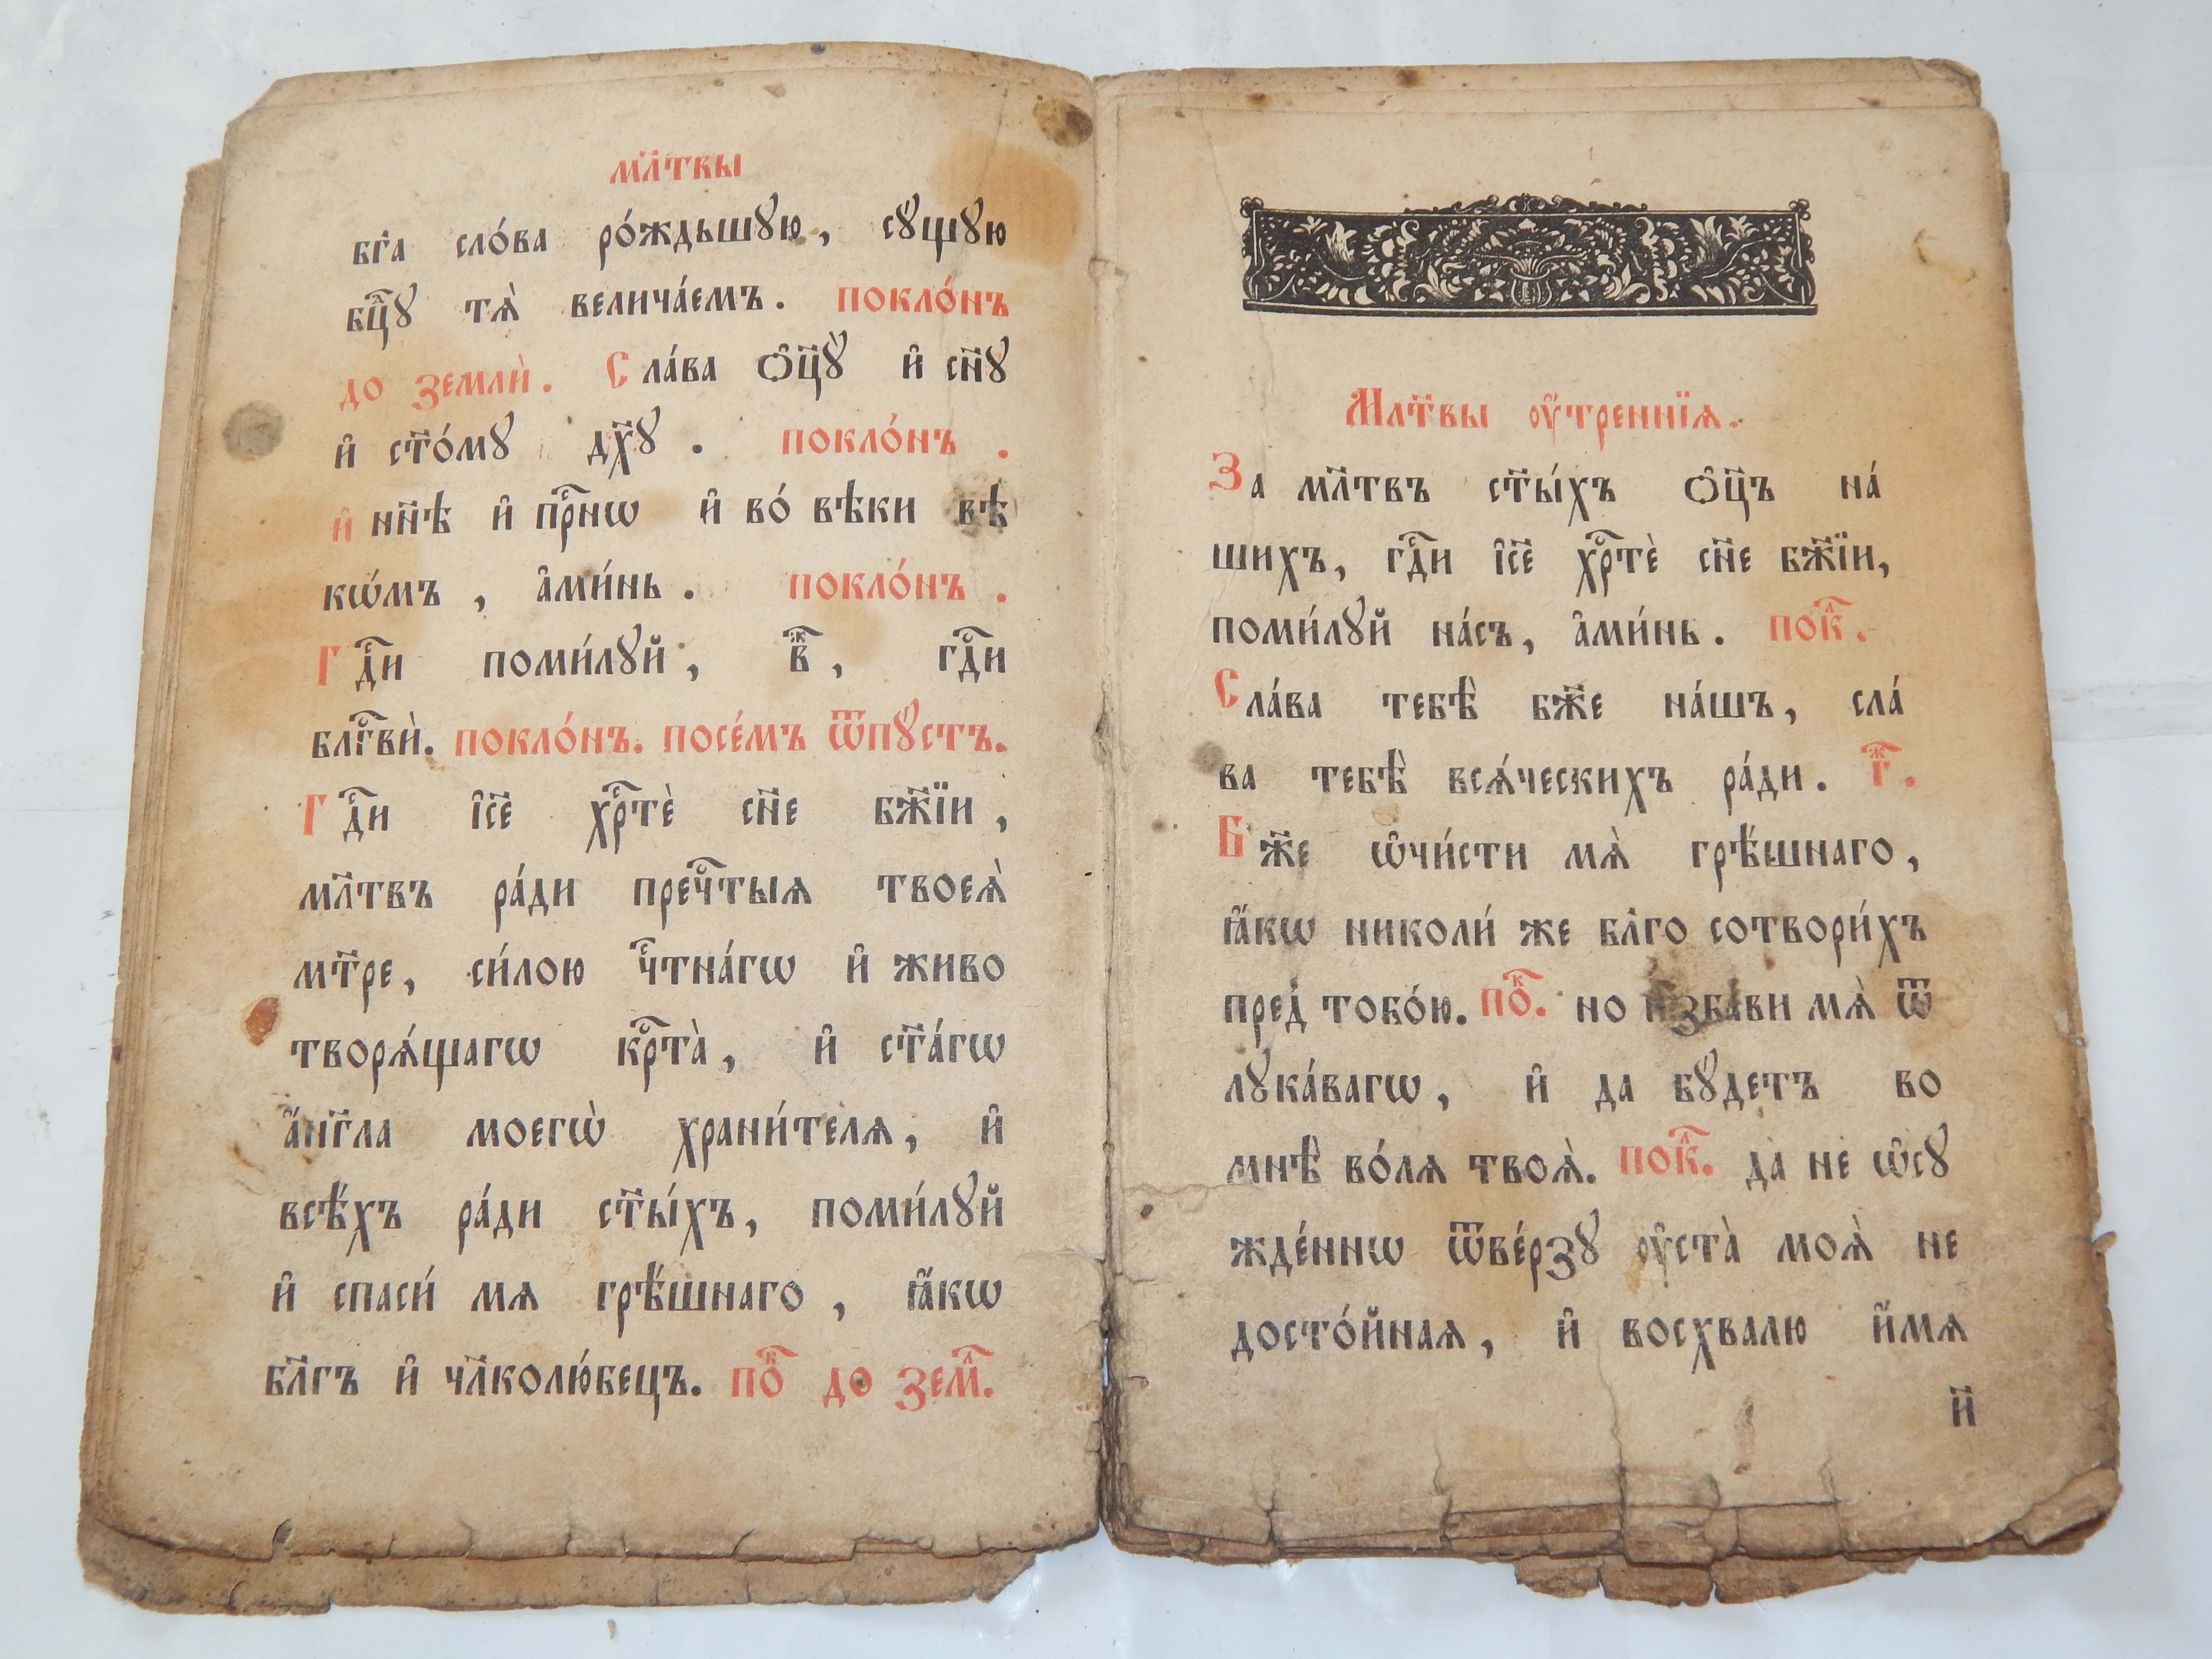 мл҃твы
бг҃а сло́ва ро́ждьшꙋю, сꙋ́щꙋю
бцⷣꙋ тѧ̀ велича́емъ. покло́нъ
до землѝ. Сла́ва ѻ҆ц҃ꙋ̀ и҆ сн҃ꙋ
и҆ ст҃о́мꙋ дх҃ꙋ. покло́нъ.
и҆ нн҃ѣ и҆ прⷭ҇нѡ и҆ во́ вѣки вѣ
кѡ́мъ, а҆ми́нь. покло́нъ.
Гдⷭ҇и поми́лꙋй, в҃ⷤ, гдⷭ҇и
блгⷭ҇вѝ. покло́нъ. посе́мъ ѿпꙋ́стъ.
Гдⷭ҇и і҆с҃е хрⷭ҇тѐ сн҃е бж҃їи,
мл҃твъ ра́ди пречⷭ҇тыѧ твоеѧ̀
мт҃ре, си́лою чⷭ҇тна́гѡ и҆ живо
творѧ́щагѡ крⷭ҇та̀, и҆ ст҃а́гѡ
а҆́нг҃ла моегѡ̀ храни́телѧ, и҆
всѣ́хъ ра́ди ст҃ы́хъ, поми́лꙋй
и҆ спаси́ мѧ грѣ́шнаго, ꙗ҆́кѡ
бл҃гъ и҆ чл҃колю́бецъ. поⷦ҇ до землⷧ҇.
Мл҃твы ᲂу҆́треннїѧ.
За мл҃твъ ст҃ы́хъ ѻ҆ц҃ъ на́
шихъ, гдⷭ҇и і҆с҃е хрⷭ҇тѐ сн҃е бж҃їи,
поми́лꙋй на́съ, а҆ми́нь. покⷧ҇.
Сла́ва тебѣ̀ бж҃е на́шъ, сла́
ва тебѣ̀ всѧ́ческихъ ра́ди. г҃ⷤ.
Бж҃е ѡ҆чи́сти мѧ̀ грѣ́шнаго,
ꙗ҆́кѡ николи́ же бл҃го сотвори́хъ
пред̾ тобо́ю. поⷦ҇. но и҆зба́ви мѧ̀ ѿ
лꙋка́вагѡ, и҆ да бꙋ́детъ во
мнѣ̀ во́лѧ твоѧ̀. покⷧ҇. да не ѡ҆сꙋ
жде́ннѡ ѿве́рзꙋ ᲂу҆ста̀ моѧ̀ не
досто́йнаѧ, и҆ восхвалю и҆́мѧ
и҃